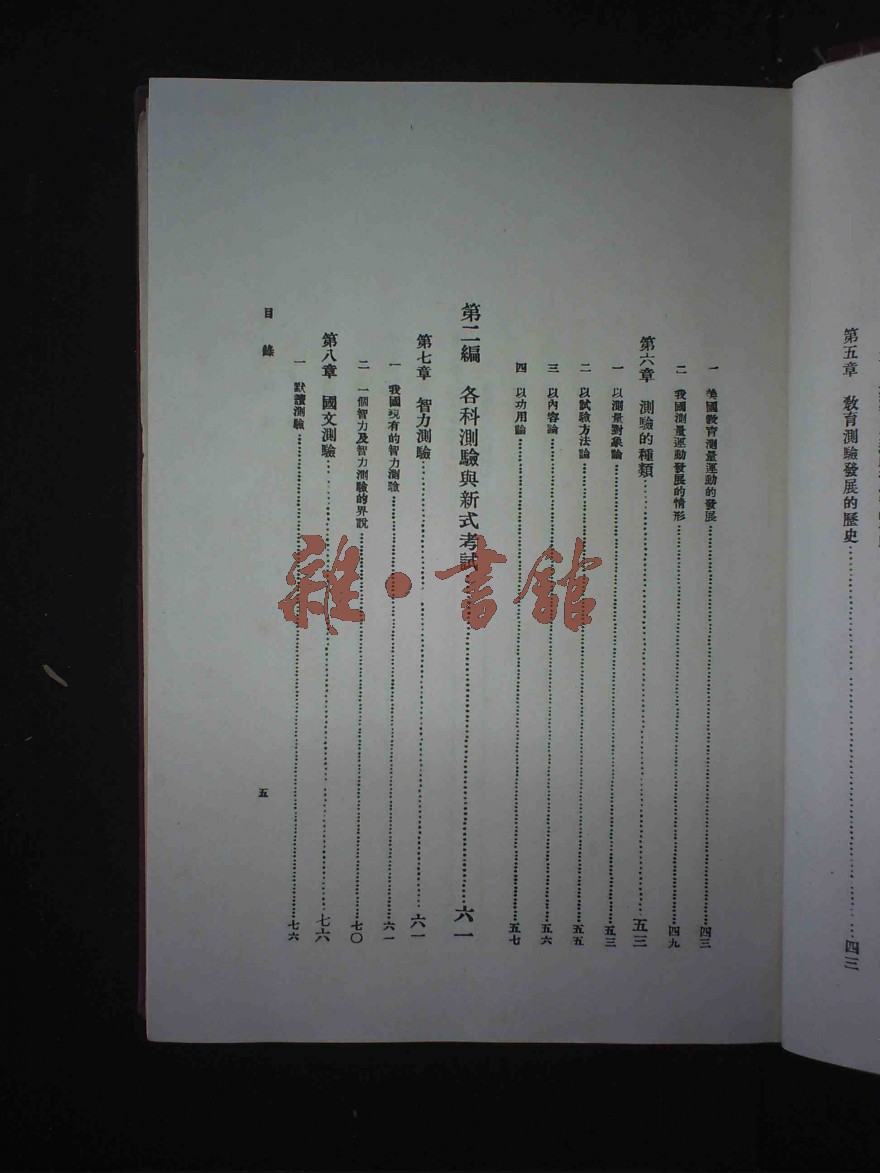 第五章　敎育測驗發展的歷史……四三
一　美國敎育測量運動的發展……四三
二　我國測量運動發展的情形……四九
第六章　測驗的種類……五三
一　以測量對象論……五三
二　以試驗方法論……五五
三　以內容論……五六
四　以功用論……五七
第二編　各科測驗與新式考試……六一
第七章　智力測驗……六一
一　我國現有的智力測驗……六一
二　一個智力及智力測驗的界說……七〇
第八章　國文測驗……七六
一　默讀測驗……七六
目錄
五
雜·書館